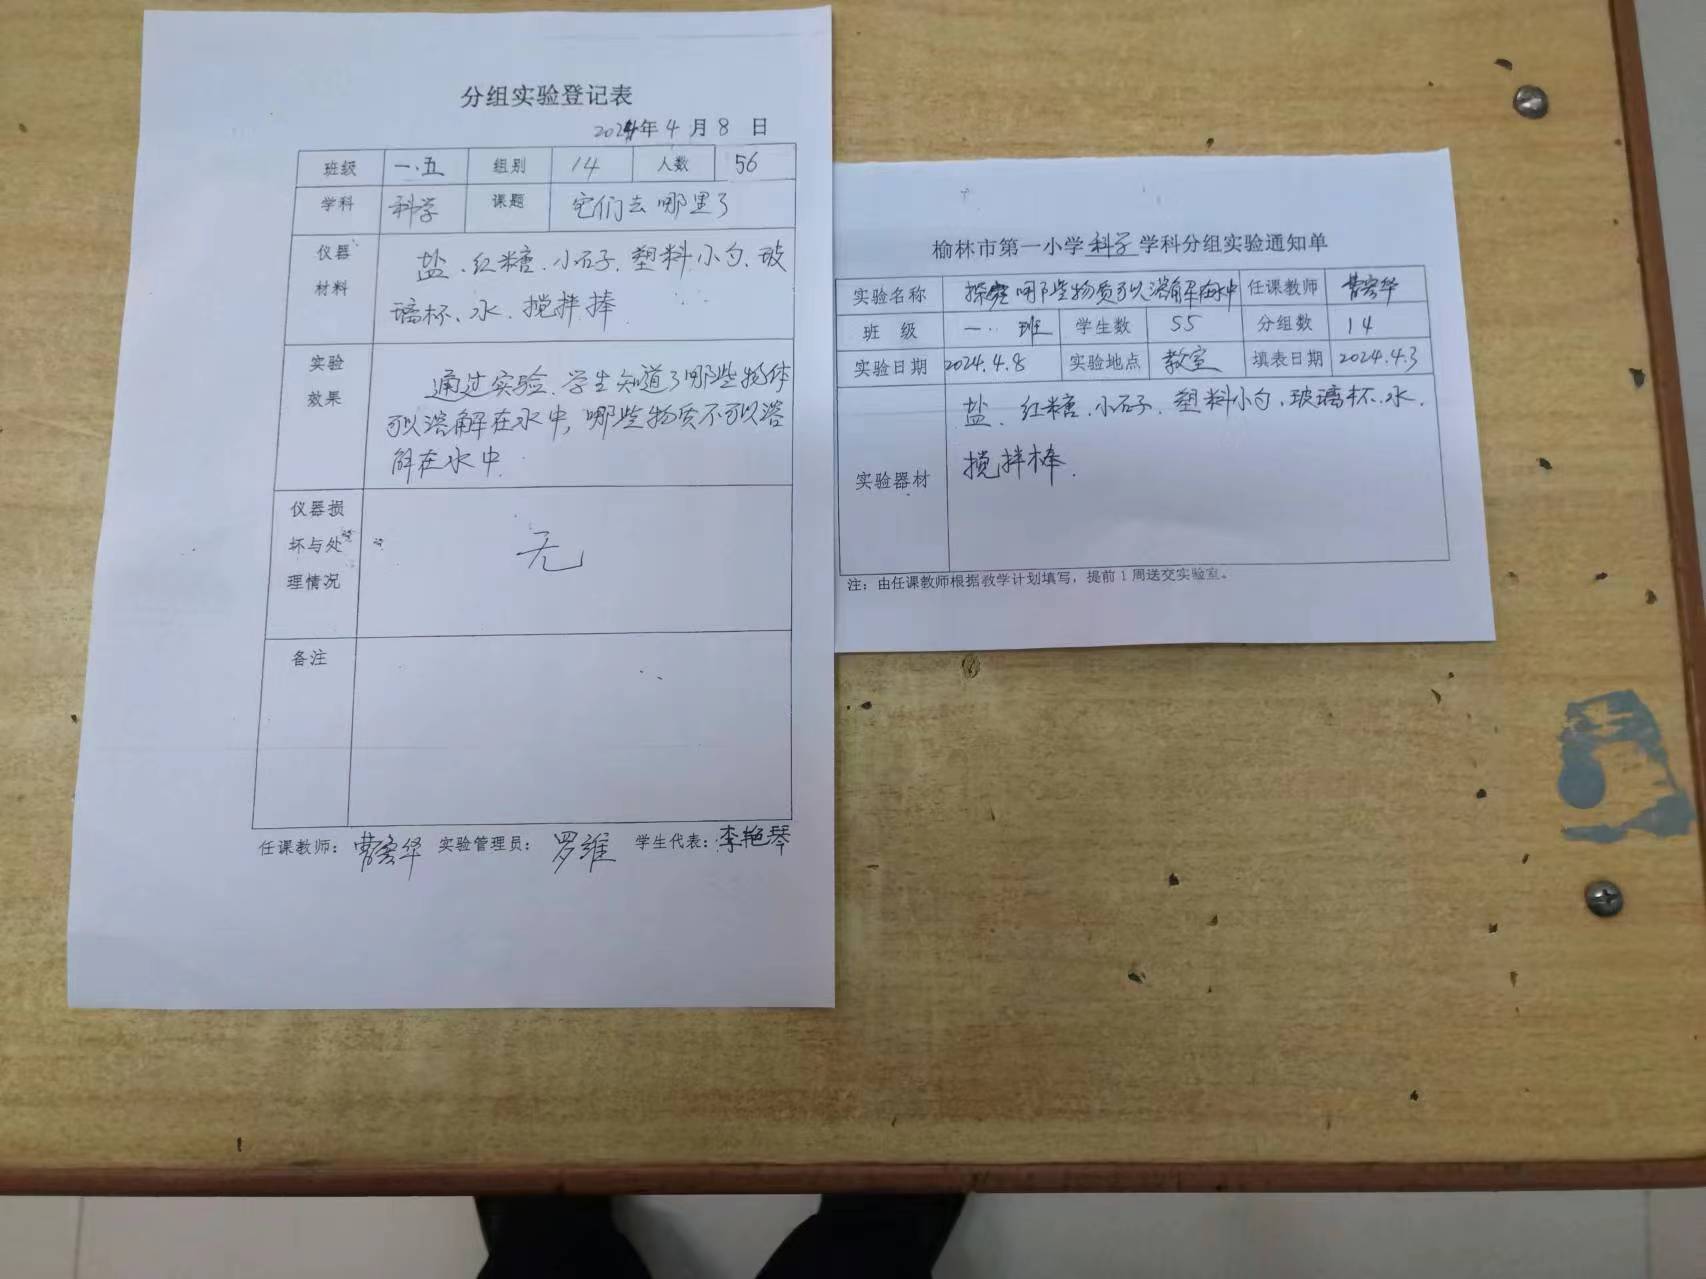 分组实验登记表
2024年4月8日
班级 一.五 组别 14 人数 56
学科 科学 课题 它们去哪里了
仪器材料 盐、红糖、小石子、塑料小勺、玻
璃杯、水、搅拌棒
实验效果 通过实验、学生知道了哪些物体
可以溶解在水中,哪些物质不可以溶
解在水中
仪器损坏与处理情况 无
备注
任课教师: 实验管理员:罗维 学生代表:李艳琴
榆林市第一小学科学学科分组实验通知单
实验名称 探究哪些物质可以溶解在水中 任课教师
班级 一.班 学生数 55 分组数 14
实验日期 2024.4.8 实验地点 教室 填表日期 2024.4.3
实验器材 盐、红糖、小石子、塑料小勺、玻璃杯、水、
搅拌棒.
注:由任课教师根据教学计划填写,提前1周送交实验室。